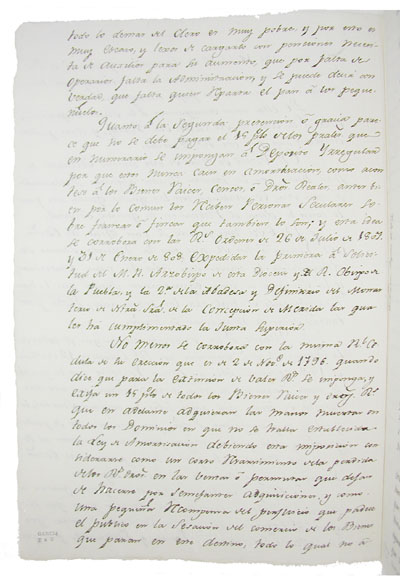 todo lo demas del Clero es muy pobre, y por esto es
muy Escaso, y lexos de cargarlo con pensiones necesi-
ta de Auxilios para su aumento, que por falta de
operarios falta la Administracion, y se puede decir con
verdad, que falta quien reparta el pan á los peque-
ñuelos.
Quanto á la Segunda pretencion ó gracia pare-
ce que no se debe pagar el 15 p%o de los prales. que
en numerario se impongan á Deposito Yrregular
por que estos nunca caen en Amortizacion, como acon-
tece á los Bienes Raices, Censos, ó dros Reales, antes bi
en por lo comun los reciben Personas Seculares so-
bre fiancas ó fincas que tambien lo son; y esta idea
se corrobora con las Rs. Ordenes de 26 de Julio de 1807
y 31 de Enero de 808. Expedidas la primera á Solici-
tud del M. R. Arzobispo de esta Diocesis y R. Obispo de
la Puebla, y la 2a. de la Abadesa y Definitorio del Monas-
terio de Ntra Sra. de la Concepcion de Merida las qua-
les ha cumplimentado la Junta Superior.
No menos se corrobora con la misma Rl. Ce-
dula de su ereccion que es de 2 de Nove. de 1796. quando
dice que para la extincion de Vales Rs. se imponga, y
exija un 15 p%o de todos los Bienes Raices y dros Rs.
que en adelante adquieran las manos muertas en
todos los Dominios en que no se halla establecida
la Ley de Amortizacion debiendo esta imposicion con-
siderarse como un corto resarcimiento de la perdida
de los Rs. dros en las ventas ó permutas que dejan
de hacerse por semejantes adquisiciones, y como
una pequeña recompensa del perjuicio que padece
el publico en la Sesacion del comercio de los Bienes
que paran en este destino, todo lo qual no á